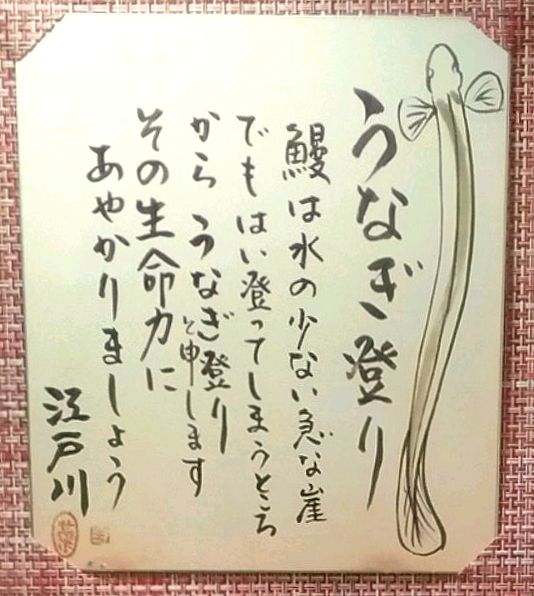 うなぎ登り
鰻は水の少ない急な崖
でもはい登ってしまうところ
から うなぎ登り
と申します
その生命力に
あやかりましょう
江戸川